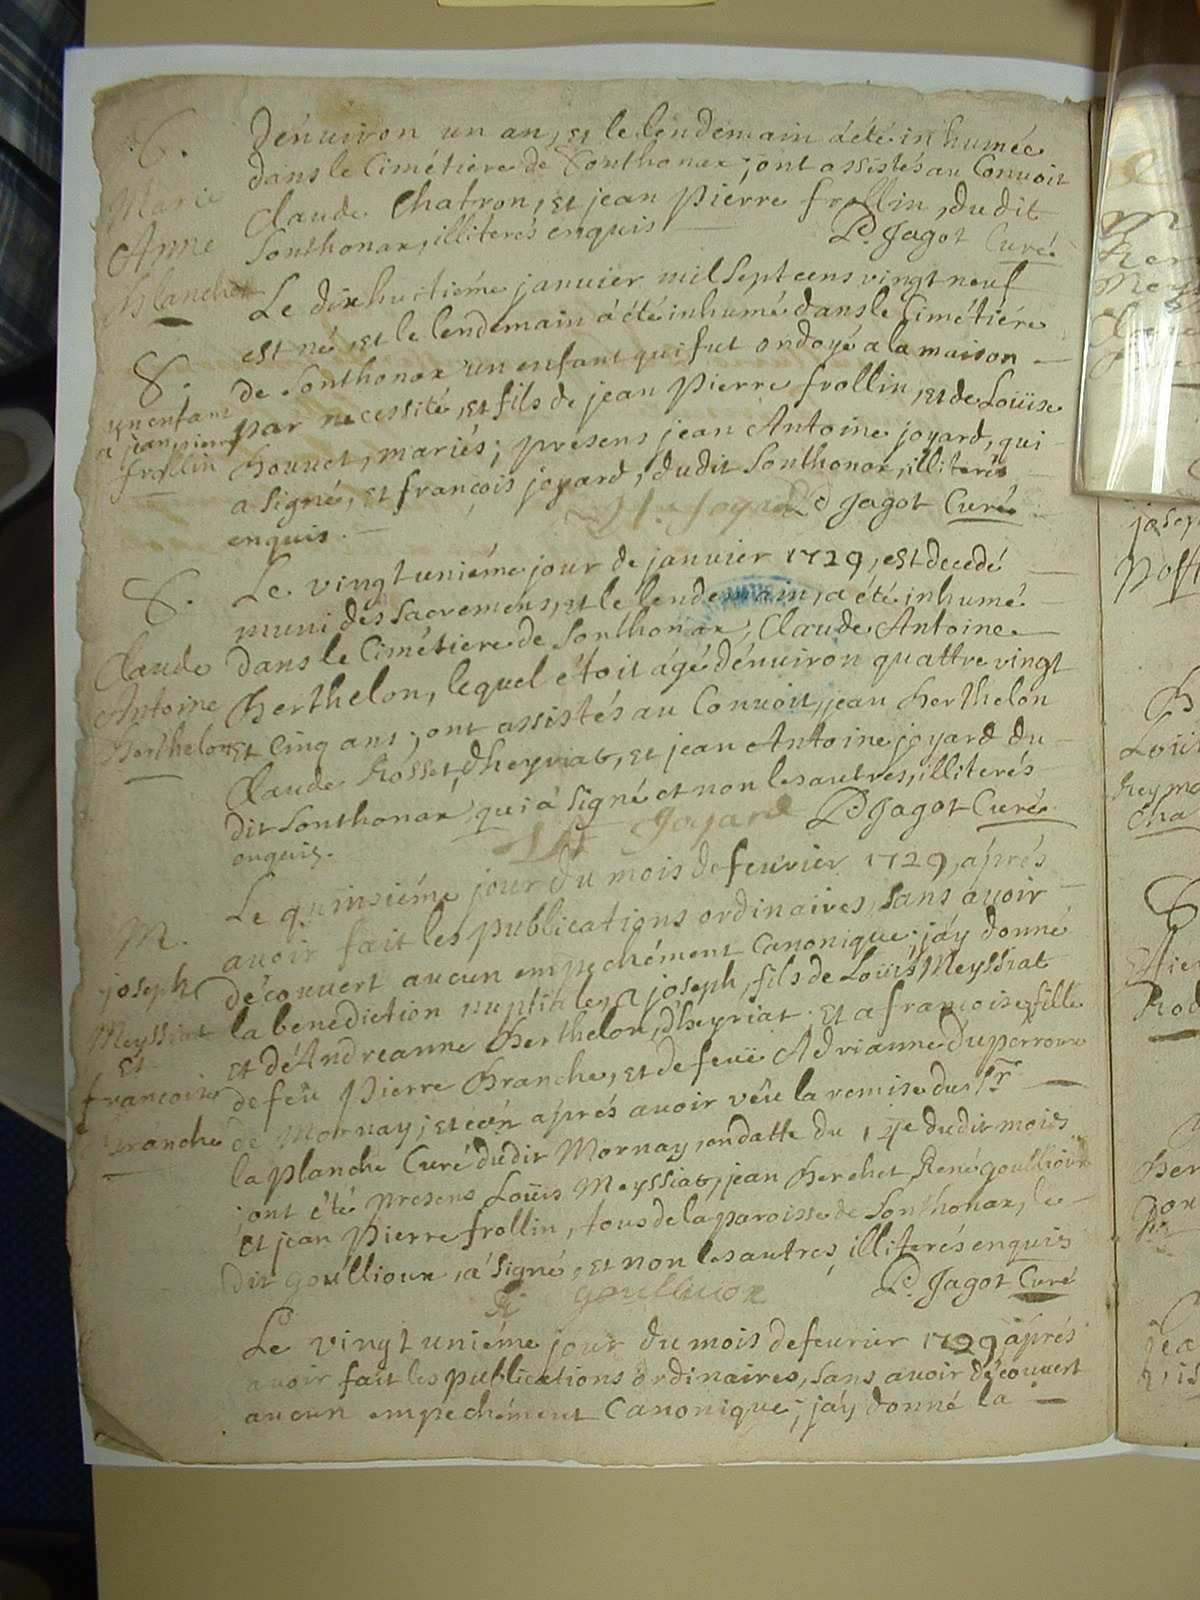 S.
Marie
Anne
Blanchet
d'enuiron un an, et le lendemain a été inhumée
dans le Cimétiere de Sonthonax; ont assistés au Convoit
Claude Chatron, et jean Pierre frollin, dudit
Sonthonax, illiterés enquis
Jagot Curé
S.
un enfant
a jean pierre
frollin
Le dixhuitiéme januier mil sept cens vingt neuf
est né, et le lendemain a été inhumé dans le Cimétiére
de Sonthonax un enfant qui fut ondoyé a la maison
par necessité, et fils de jean Pierre frollin, et de Loüise
bouuet, mariés; presens jean Antoine joyard, qui
a signé, et françois joyard, dudit Sonthonax, illiterés
enquis.
Joyard
Jagot Curé
S.
Claude
Antoine
berthelon
Le vingt uniéme jour de januier 1729, est decedé
muni des sacremens, et le lendemain, a été inhumé
dans le Cimétiere de Sonthonax, Claude Antoine
berthelon, lequel étoit ágé d'enuiron quattre vingt
et Cinq ans; ont assistés au Conuoit, jean berthelon
Claude Rosset, d'heyriat, et jean Antoine joyard du
dit Sonthonax qui a signé et non les autres, illiterés
enquis.
Joyard
Jagot Curé
M.
joseph
Meyssiat
et
françoise
branche
Le quinsiéme jour du mois de feurier 1729, aprés
auoir fait les publications ordinaires, sans auoir
découuert aucun empechément Canonique; j'áy donné
la benediction nuptiale, a joseph, fils de Loüis Meyssiat
et d'Andreanne berthelon, d'heyriat. et a françoise, fille
de feü Pierre branche, et de feuë Adrianne duperroux
de Mornay; et ce aprés auoir vêu la remise du Sr
la planche Curé dudit Mornay, en datte du dudit mois
ont été presens Loüis Meyssiat, jean berchet, René goullioux
et jean Pierre frollin, tous de la paroisse de Sonthonax, le
dit goüllioux, a signé, et non les autres, illiterés enquis
R goullioux
Jagot Curé
Le vingt uniéme jour du mois de feurier 1729, áprés
auoir fait les publications ordinaires, sans auoir découuert
aucun empechément Canonique; j'áy donné la